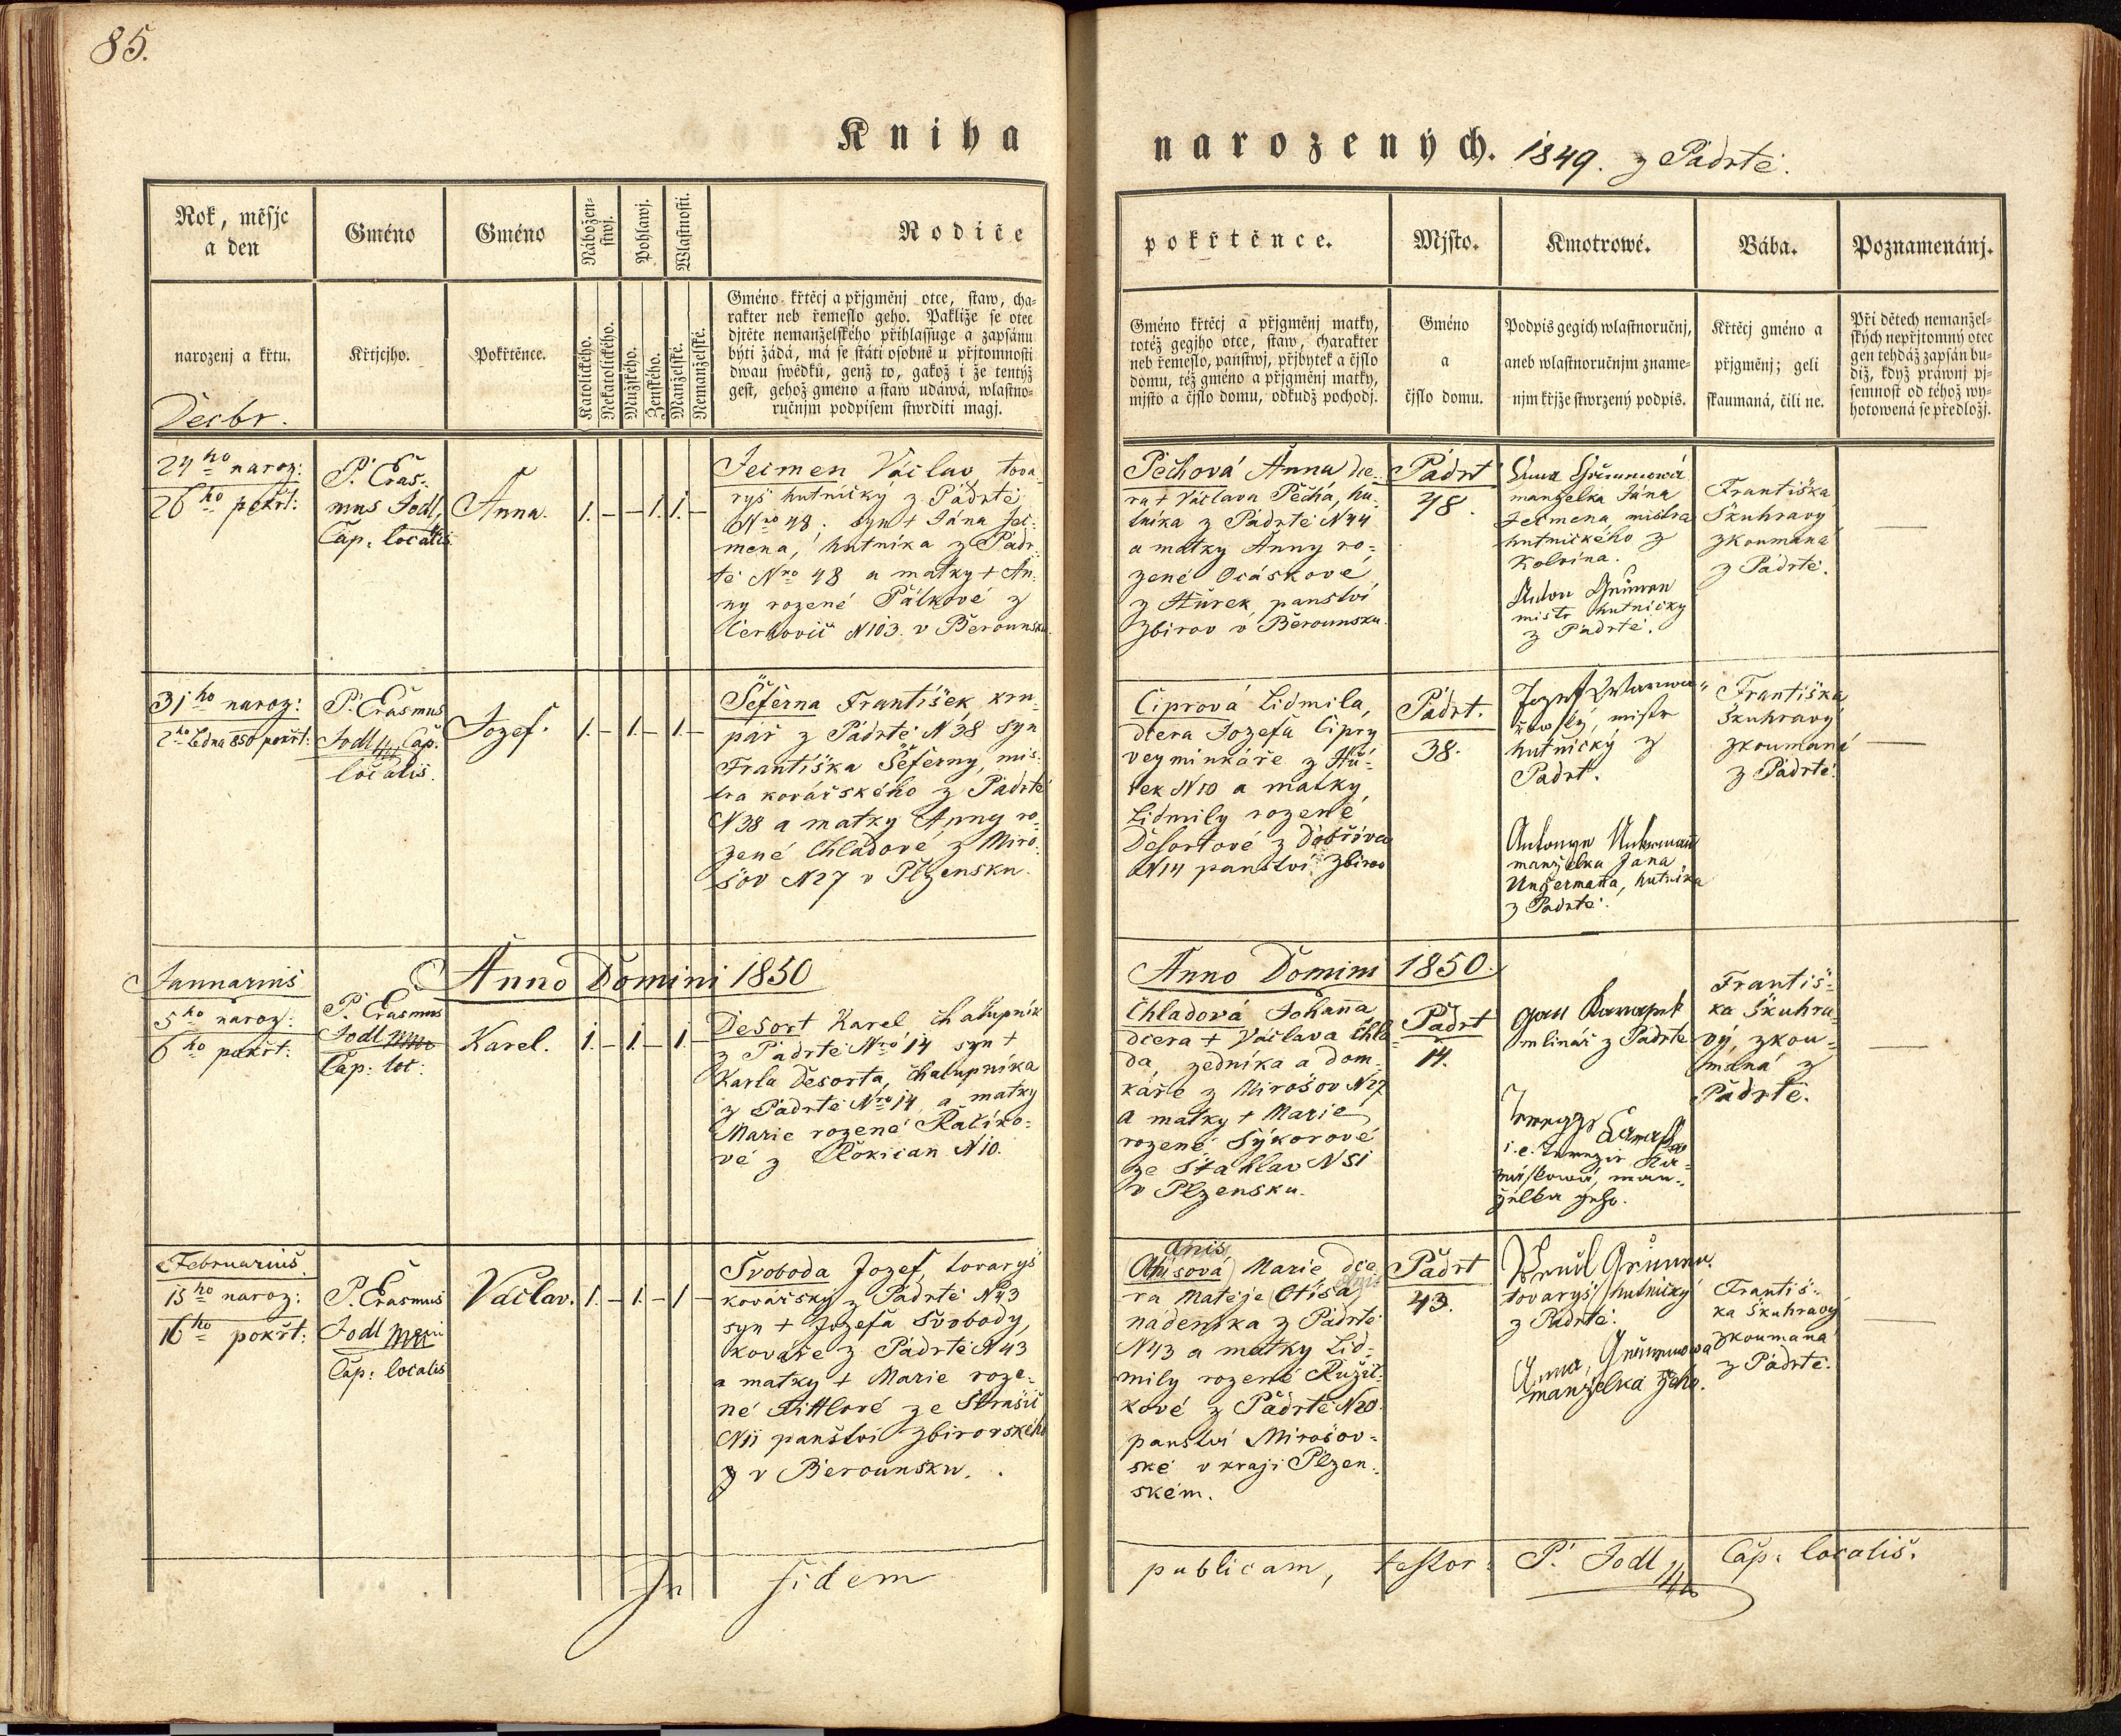 85.
Kniha
narozených. 1849. z Padrtě.
Rok, měsjc
a den
Gméno
Gméno
Nábožen-
stwj.
Pohlawj.
Wlastnosti.
Rodiče
pokřtěnce.
Mjsto.
Kmotrowé.
Bába.
Poznamenánj.
narozenj a křtu.
Křtjcjho.
Pokřtěnce.
Katolického.
Nekatolického.
Mužského.
Ženského.
Manželské.
Nemanželské.
Gméno křtěcj a přjgměnj otce, staw, cha-
rakter neb řemeslo geho. Pakliže se otec
djtěte nemanželského přihlassuge a zapsánu
býti žádá, má se státi osobně u přjtomnosti
dwau swědků, genž to, gakož i že tentýž
gest, gehož gmeno a staw udáwá, wlastno-
ručnjm podpisem stwrditi magj.
Gméno křtěcj a přjgměnj matky,
totéž gegjho otce, staw, charakter
neb řemeslo, panstwj, přjbytek a čjslo
domu, též gméno a přjgměnj matky,
mjsto a čjslo domu, odkudž pochodj.
Gméno
a
čjslo domu.
Podpis gegich wlastnoručnj,
aneb wlastnoručnjm zname-
njm křjže stwrzený podpis.
Křtěcj gméno a
přjgměnj; geli
skaumaná, čili ne.
Při dětech nemanžel-
ských nepřjtomný otec
gen tehdáž zapsán bu-
diž, když práwnj pj-
semnost od téhož wy-
hotowená se předložj.
Decbr.
24ho naroz:
26ho pokřt:
P. Eras-
mus Jodl,
Cap. localis
Anna.
1. — — 1. 1. —
Ječmen Václav, tova-
ryš hutnický z Padrtě
Nro 48. syn + Jána Ječ-
mena, hutníka z Padr-
tě Nro 48 a matky + An-
ny rozené Pálkové z
Cerhovic N103. v Berounsku.
Pechová Anna dce-
ra + Václava Pecha, hu-
tníka z Padrtě N44
a matky Anny ro-
zené Ocáskové,
z Hůrek, panství
Zbirov v Berounsku.
Padrť
48.
manželka Jána
Ječmena, mistra
hutnického z
Kolvína.
mistr hutnický
z Padrtě.
Františka
Škuhravy
zkoumaná
z Padrtě.
31ho naroz:
2ho Ledna 850 pokřt:
P. Erasmus
Jodl Cap.
localis.
Jozef.
1. — 1. — 1. —
Šeferna František, kru-
pař z Padrtě N38 syn
Františka Šeferny, mis-
tra kovářského z Padrtě
N38 a matky Anny ro-
zené Chladové z Miro-
šov N27 v Plzensku.
Ciprová Lidmila,
dcera Jozefa Cipry
vejminkáře z Hů-
rek N10 a matky,
Lidmily rozené
Desortové z Dobřova
N14 panství Zbirov
Padrt.
38.
mistr
hutnický z
Padrt.
manželka Jana
Ungermana, hutníka
z Padrtě.
Františka
Škuhravy
zkoumaná
z Padrtě.
Januarius
Anno Domini 1850
Anno Domini 1850.
5ho naroz:
6ho pokřt:
P. Erasmus
Jodl
Cap: loc:
Karel.
1. — 1. — 1. —
Desort Karel, chalupník
z Padrtě Nro 14 syn +
Karla Desorta, chalupníka
z Padrtě Nro 14, a matky
Marie rozené Ralíko-
vé z Rokican N10.
Chladová Johanna
dcera + Václava Chla-
da, zedníka a dom-
káře z Mirošov N27
a matky + Marie
rozené Sýkorové
ze Stahlav N51
v Plzensku.
Padrt
14.
mlinář z Padrtě
manželka jeho.
Františ-
ka Škuhra-
vý, zkou-
maná z
Padrtě.
Februarius
15ho naroz:
16ho pokřt:
P. Erasmus
Jodl
Cap: localis
Václav.
1. — 1. — 1 —
Svoboda Jozef, tovaryš
kovářský z Padrtě N43
syn + Jozefa Svobody,
kováře z Padrtě N43
a matky + Marie roze-
né Tittlové ze Strašic
N11 panství Zbirovského
v Berounsku.
Anis
Marie dce-
ra Matěje (Otisa)
nádeníka z Padrtě
N43 a matky Lid-
mily rozenéRužič-
kové z Padrtě N20.
panství Mirošov-
ské v kraji Plzen-
ském.
Padrt
43.
tovaryš hutnický
z Padrtě.
Anna
manželka jeho.
Františ-
ka Škuhravy
zkoumaná
z Padrtě.
In fidem
publicam, testor: P. Jodl Cap: localis.